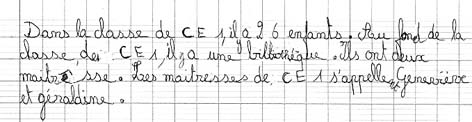 Dans la classe de CE1, il a 26 enfants. Au fond de la
classe, de CE1, il, y, a une bibliothèque. Ils ont deux
maitresse. Les maitresses de CE1 s'appelle Geneviève
et géraldine.